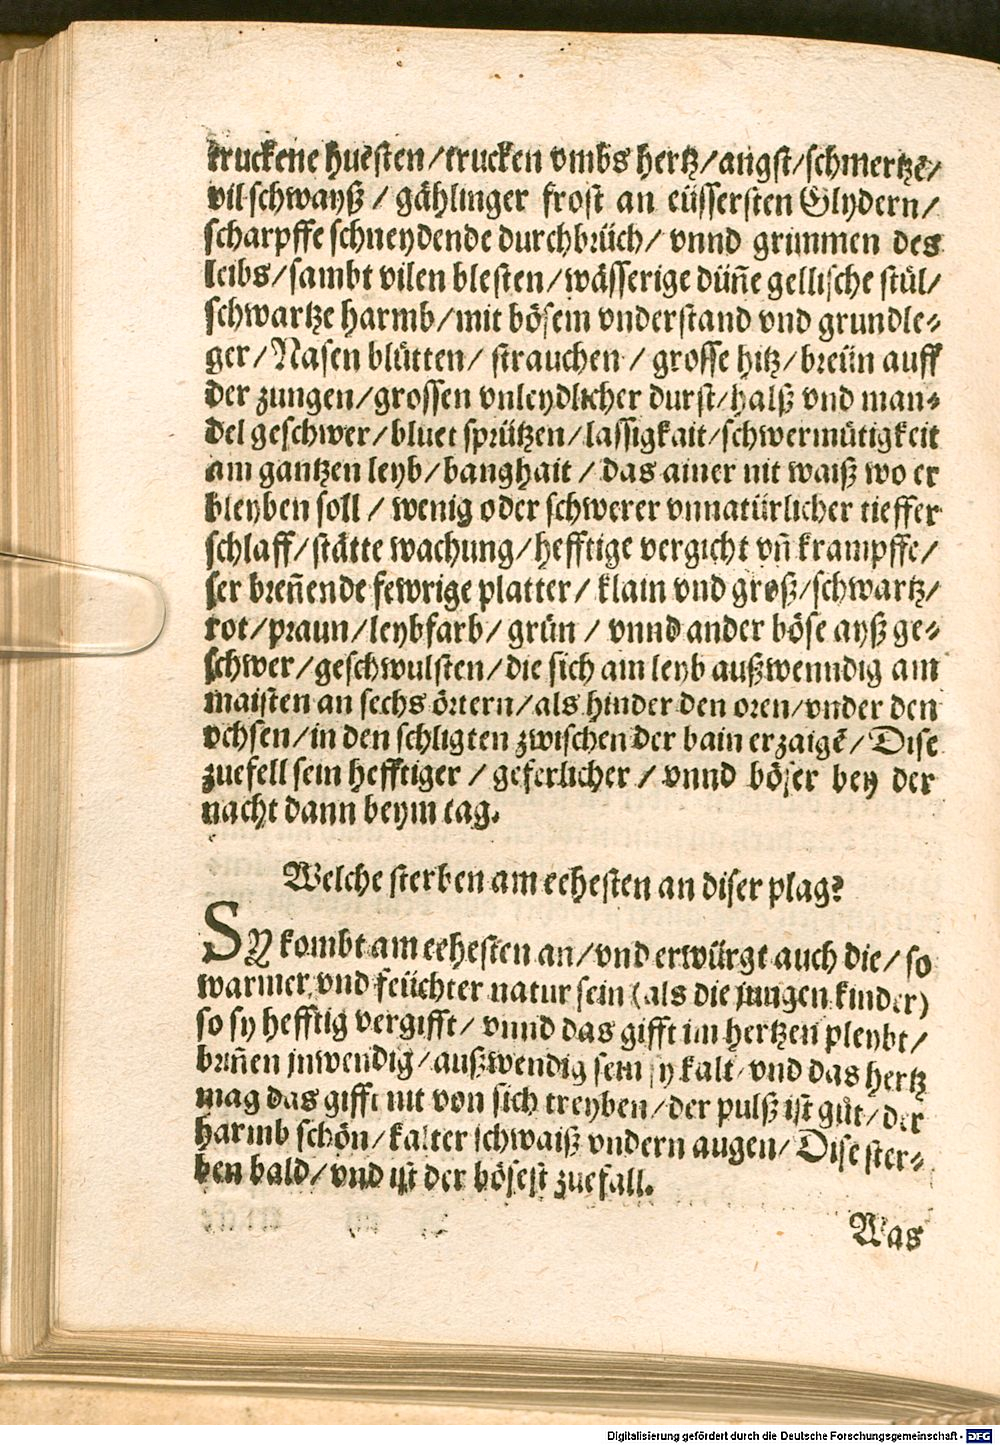 truckene huesten/trucken vmbs hertz/angst/schmertzē/
vil schwayß / gählinger frost an eüssersten Glydern/
scharpffe schneydende durchbrüch/ vnnd grimmen des
leibs/sambt vilen blesten/wässerige düñe gellische stül/
schwartze harmb/mit bösem vnderstand vnd grundle⸗
ger/Nasen blütten/ strauchen / grosse hitz/breün auff
der zungen/grossen vnleydlicher durst/halß vnd man⸗
del geschwer/bluet sprützen/lassigkait/schwermütigkeit
am gantzen leyb/banghait / das ainer nit waiß wo er
bleyben soll / wenig oder schwerer vnnatürlicher tieffer
schlaff/stätte wachung/hefftige vergicht vñ krampffe/
ser breñende fewrige platter/ klain vnd groß/schwartz/
rot/praun/leybfarb/grün / vnnd ander böse ayß ge⸗
schwer/geschwulsten/die sich am leyb außwenndig am
maisten an sechs örtern/als hinder den oren/vnder den
vchsen/in den schligten zwischen der bain erzaigē/Dise
zuefell sein hefftiger / geferlicher / vnnd böser bey der
nacht dann beym tag.
Welche sterben am eehesten an diser plag?
SY kombt am eehesten an/vnd erwürgt auch die/ so
warmer vnd feüchter natur sein (als die jungen kinder)
so sy hefftig vergifft/ vnnd das gifft im hertzen pleybt/
briñen jnwendig/außwendig sein sy kalt/vnd das hertz
mag das gifft nit von sich treyben/der pulß ist gůt/der
harmb schön/kalter schwaiß vndern augen/ Dise ster⸗
ben bald/vnd ist der bösest zuefall.
Was
Digitalisierung gefördert durch die Deutsche Forschungsgemeinschaft - DFG